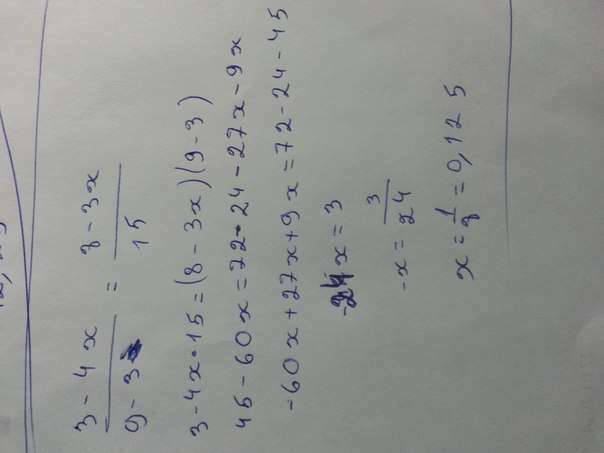 3 - 4x / 9 - 3 = 8 - 3x / 15
3 - 4x • 15 = (8 - 3x)(9 - 3)
45 - 60x = 72 - 24 - 27x - 9x
-60x + 27x + 9x = 72 - 24 - 45
-24x = 3
-x = 3/24
x = 1/8 = 0,125